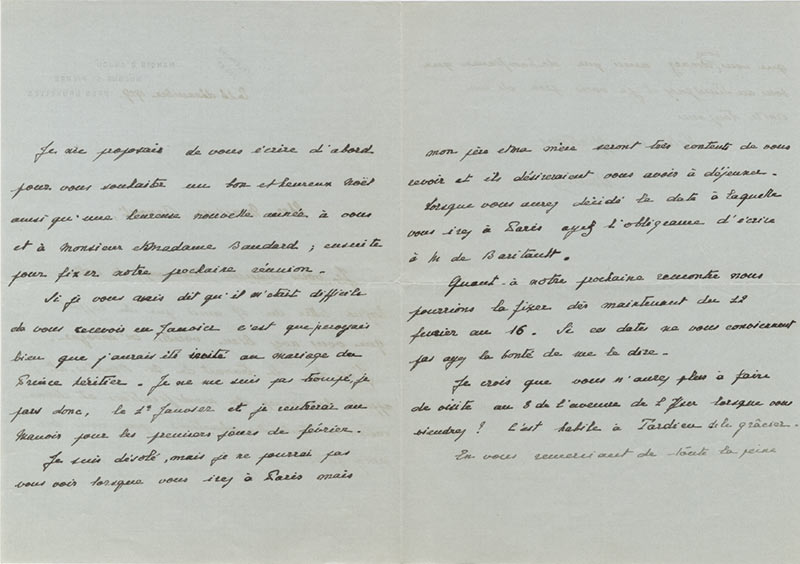 Je me proposais de vous écrire d'abord
pour vous souhaiter un bon et heureux Noël
ainsi qu'une heureuse nouvelle année à vous
et à Monsieur et Madame Baudard ; ensuite
pour fixer notre prochaine réunion.
Si je vous avais dit qu'il m'était difficile
de vous recevoir en Janvier c'est que
bien que j'aurais été invité au mariage du
Prince héritier. Je ne me suis pas trompé, je
pars donc, le Janvier et je rentrerai au
Manoir pour les premiers jours de février.
Je suis désolé, mais je ne pourrai pas
vous voir lorsque vous irez à Paris mais
mon père et ma mère seront très contents de vous
revoir et ils désireraient vous avoir à déjeuner.
Lorsque vous aurez décidé la date à laquelle
vous irez à Paris ayez l'obligeance d'écrire
à M de Baritault.
Quant à notre prochaine rencontre nous
pourrions la fixer dès maintenant du 12
février au 16. Si ces dates ne vous conviennent
pas ayez la bonté de me le dire.
Je crois que vous n'aurez plus à faire
de visite au 8 de l'avenue de l'Yser lorsque vous
viendrez ? C'est habile à Tardieu de le grâcier.
En vous remerciant de toute la peine